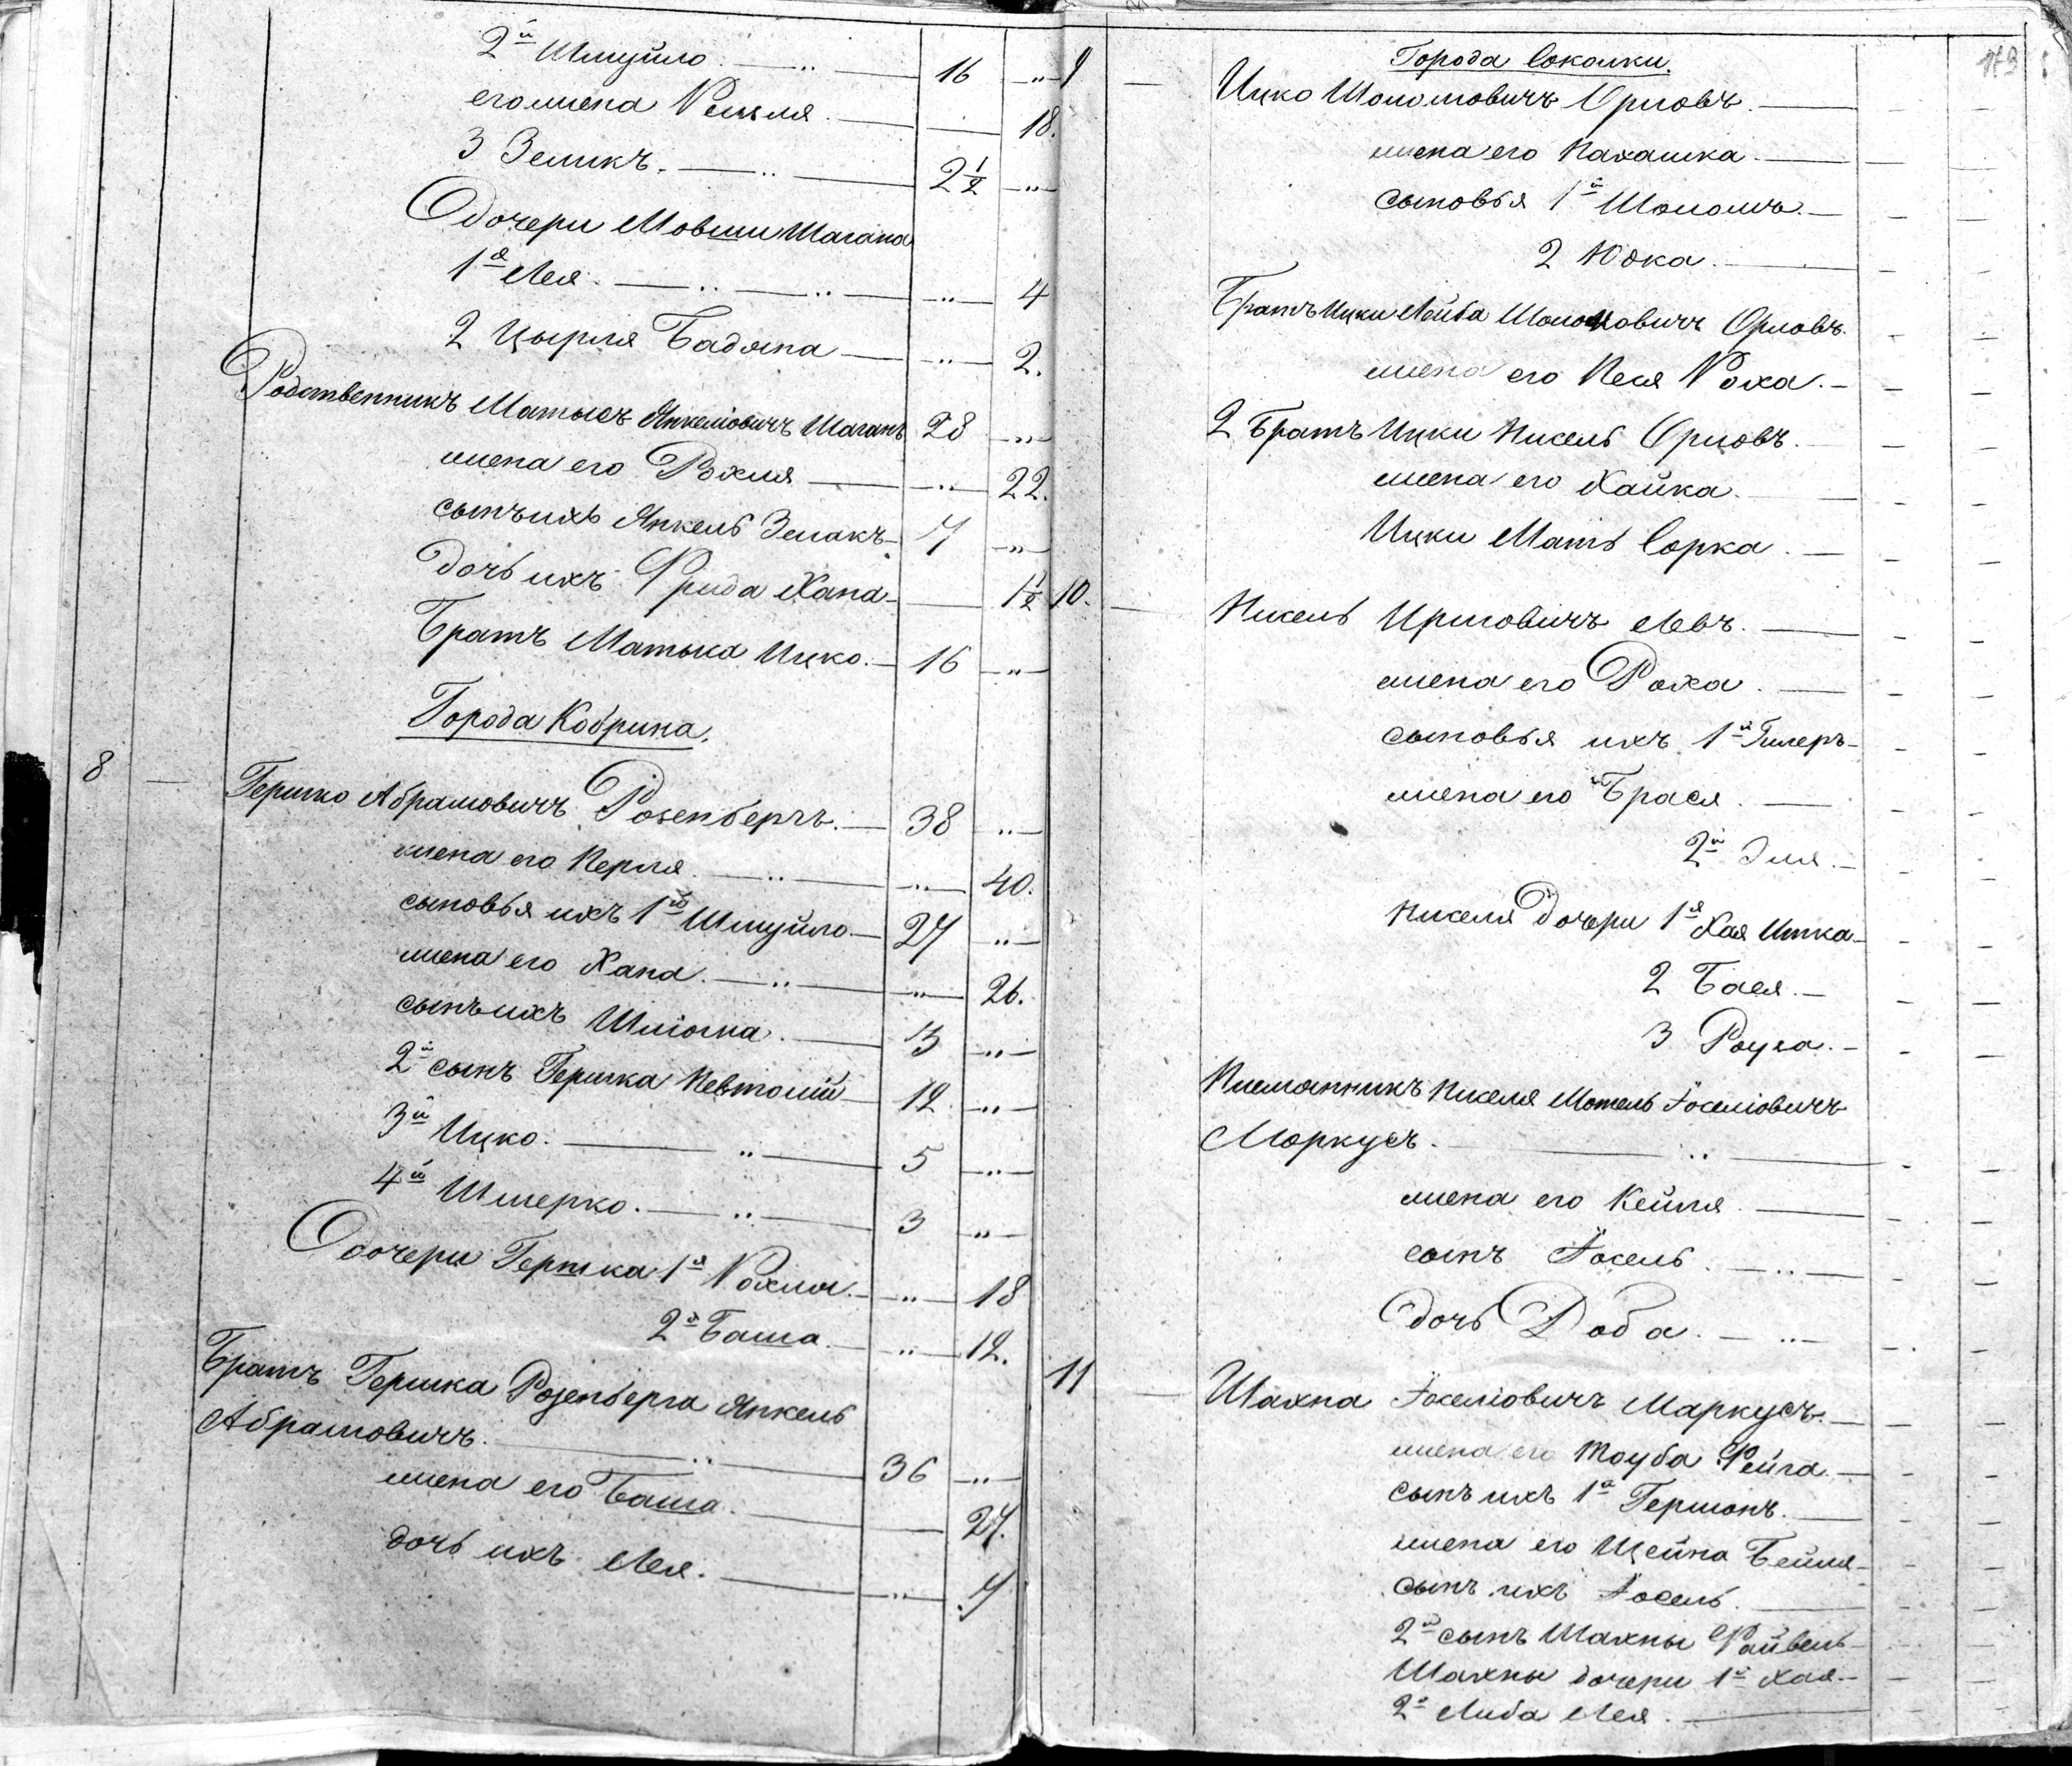 2й Шмуйло. — 16 —
его жена Рейзля. — 18.
3 Зеликъ. — 2½ —
Дочери Мовши Шагана
1я Лея. — 4
2 Цырля Бадана — 2.
Родственникъ Матысъ Янкелiовичъ Шаганъ 28 —
жена его Рохля — 22.
сынъ ихъ Янкель Зелакъ 7 —
дочь ихъ Фрида Хана — 1½
Братъ Матыса Ицко. — 16 —
Города Кобрина.
8 — Гершко Абрамовичъ Розенбергъ. — 38 —
жена его Перля. — 40.
сыновья ихъ 1й Шмуйло. — 27 —
жена его Хана. — 26.
сынъ ихъ Шлiома. — 3 —
2й сынъ Гершка Невтолiй — 12 —
3й Ицко. — 5 —
4й Шмерко. — 3 —
Дочери Гершка 1я Рохля. — 18
2я Баша. — 12.
Братъ Гершка Розенберга Янкель
Абрамовичъ. — 36 —
жена его Баша. — 27.
дочь ихъ Лея. — 7
173
Города Соколки.
9 — Ицко Шоломовичъ Орловъ. —
жена его Нахашка. —
сыновья 1й Шоломъ. —
2 Юдка. —
Братъ Ицки Лейба Шоломовичъ Орловъ.
жена его Песя Роха. —
2 Братъ Ицки Нисель Орловъ. —
жена его Хайка. —
Ицки Мать Сорка. —
10. — Нисель Иршовичъ Левъ. —
жена его Роха. —
сыновья ихъ 1й Гилеръ —
жена его Брася. —
2й Эля. —
Ниселя дочери 1я Хая Итка —
2 Бася. —
3 Роуха. —
Племянникъ Ниселя Мотель Iоселiовичъ
Моркусъ. —
жена его Кейля. —
сынъ Iосель. —
дочь Доба. —
11 — Шахна Iоселiовичъ Маркусъ. —
жена его Тоуба Фейга. —
сынъ ихъ 1й Гершонъ. —
жена его Цейна Бейля —
сынъ ихъ Iосель. —
2й сынъ Шахны Файвель —
Шахны дочери 1я Хая —
2я Либа Лея. —